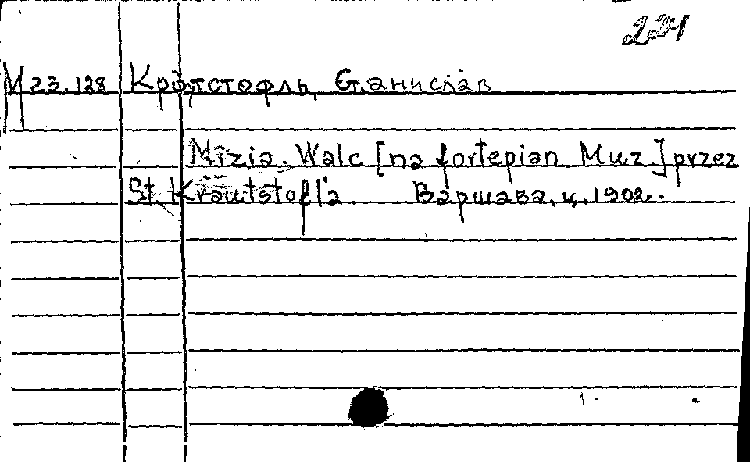 221
М 23.128 Кравтстофль, Станислав
Mizia. Walc [na fortepian Muz.] przez
St. Krautstofl'a. Варшава, ц. 1902.